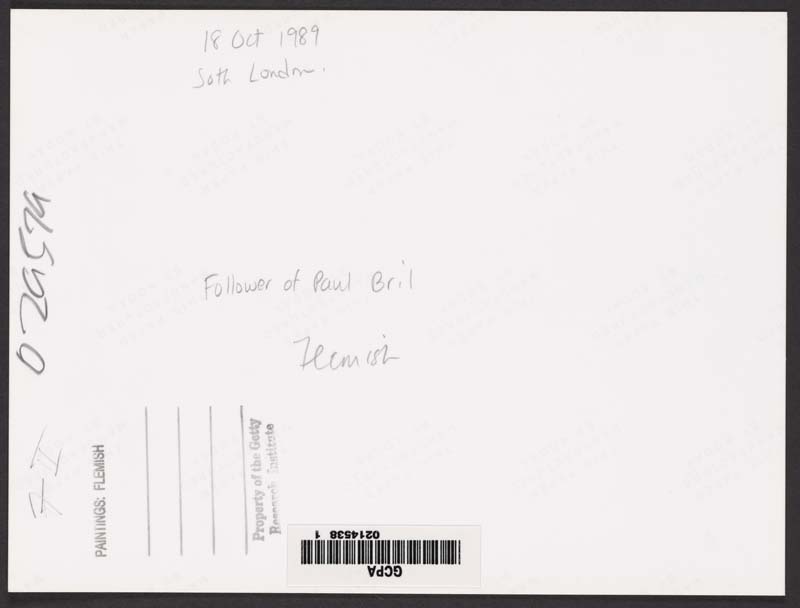 18 Oct 1989
Soth London.
Follower of Paul Bril
Flemish
PAINTINGS: FLEMISH
Property of the Getty
Research Institute
0214538 1
GCPA